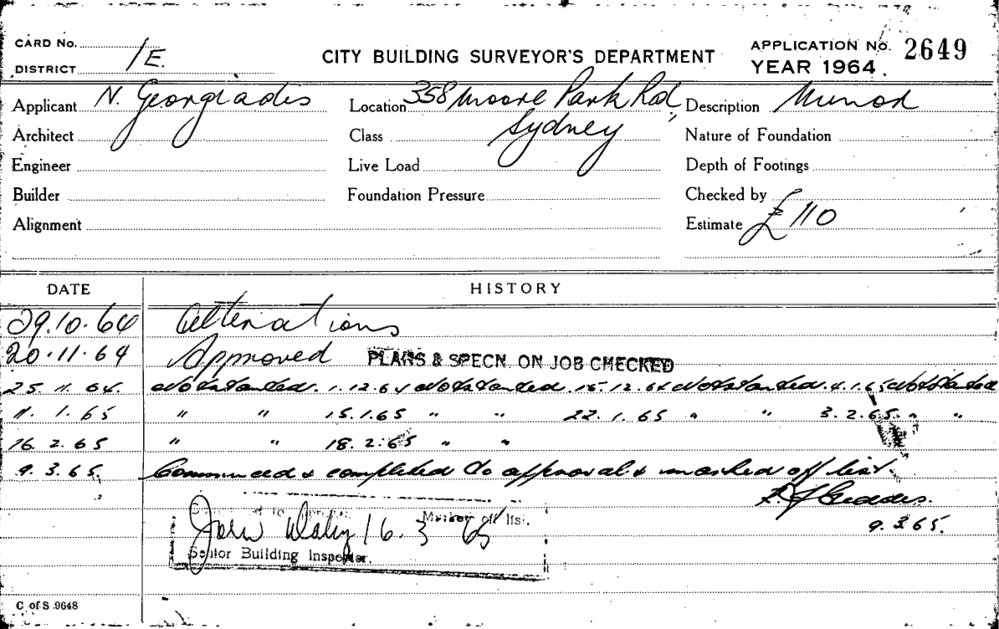 CARD No. 1E.
DISTRICT
CITY BUILDING SURVEYOR'S DEPARTMENT
APPLICATION No. 2649
YEAR 1964.
Applicant N. Georgiadis
Location 358 Moore Park Rd,
Sydney
Description Minor
Architect
Class
Nature of Foundation
Engineer
Live Load
Depth of Footings
Builder
Foundation Pressure
Checked by
Alignment
Estimate £110
DATE HISTORY
29.10.64 Alterations
20.11.64 Approved PLANS & SPECN. ON JOB CHECKED
25.11.64. Not started. 1.12.64 Not started. 15.12.64 Not started. 4.1.65 Not started
11.1.65 " " 15.1.65 " " 22.1.65 " " 3.2.65. " "
16.2.65 " " 18.2.65 " "
9.3.65. Commenced & completed to approval & marked off list.
Geddes.
9.3.65.
to Marked off list.
John 16.3.65
Senior Building Inspector.
C of S 9648